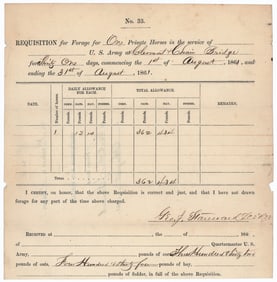 No. 33.
REQUISITION for Forage for One Private Horses in the service of
U. S. Army at Chain Bridge
for Thirty One days, commencing the 1st of August, 1861, and
ending the 31st of August, 1861.
DATE. Number of Horses. DAILY ALLOWANCE FOR EACH. TOTAL ALLOWANCE. REMARKS.
Pounds Pounds Pounds Pounds Pounds Pounds
1 12 14 362 434
Total 362 434
I CERTIFY, on honor, that the above Requisition is correct and just, and that I have not drawn
forage for any part of the time above charged.
RECEIVED at the of 186 ,
of Quartermaster U. S.
Army, pounds of corn Three Hundred & thirty two
pounds of oats, Four Hundred & thirty four pounds of hay,
pounds of fodder, in full of the above Requisition.